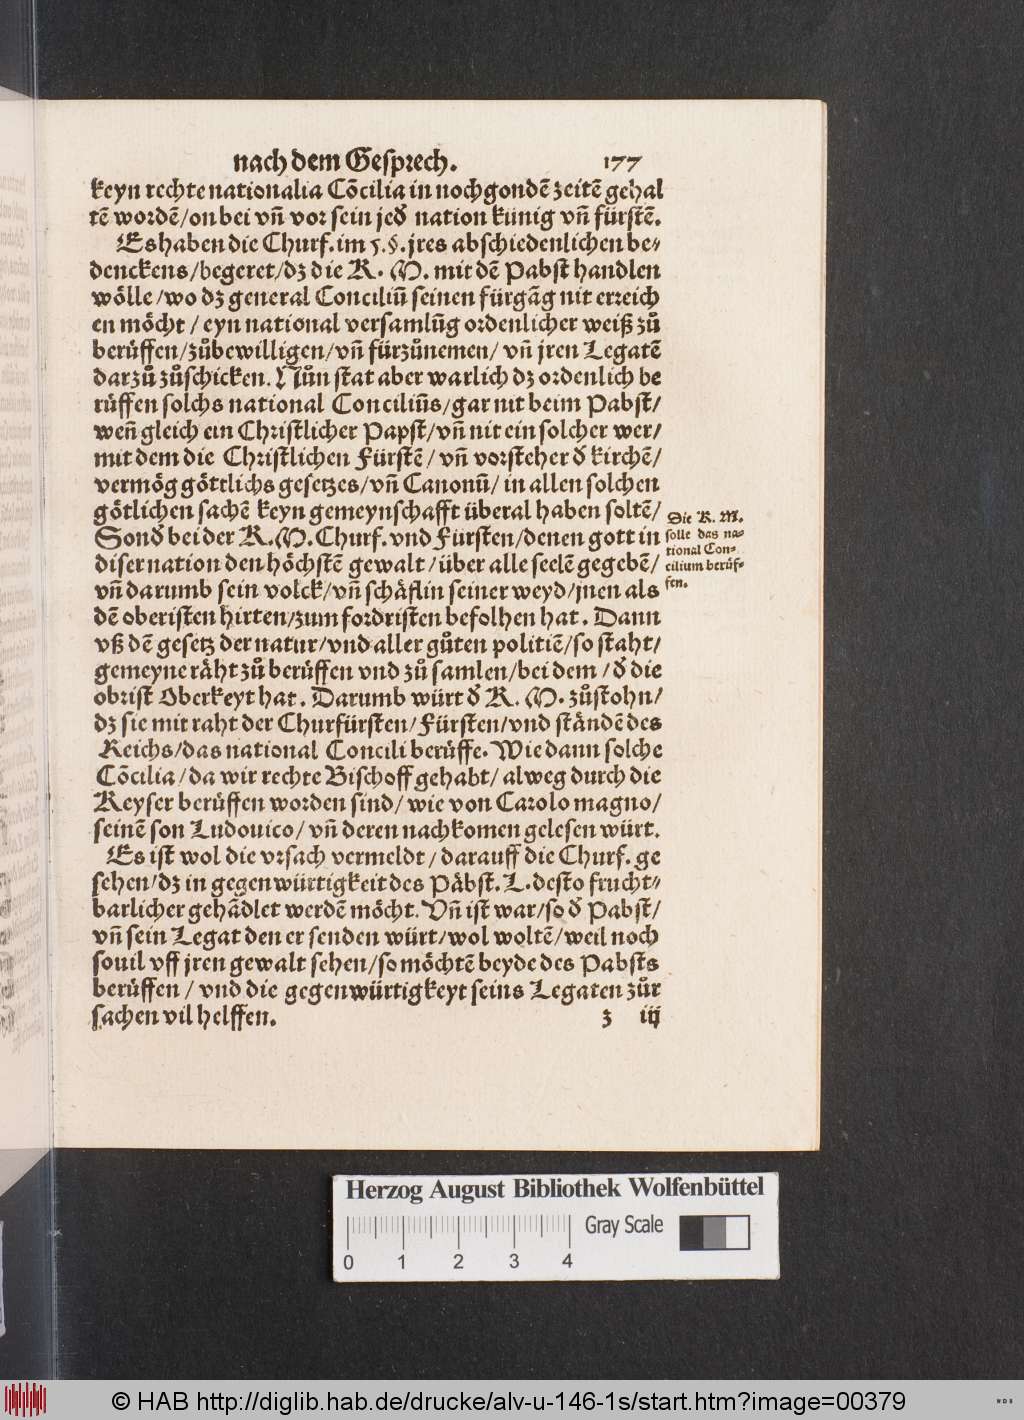 nach dem Gesprech. 177
keyn rechte nationalia Cōcilia in nochgondē zeitē gehal
tē wordē/on bei vñ vor sein jeď nation künig vñ fürstē.
Es haben die Churf. im 5. §. jres abschiedenlichen be⸗
denckens/begeret/dz die K. M. mit dē Pabst handlen
wölle/wo dz general Conciliū seinen fürgāg nit erreich
en möcht/ eyn national versamlūg ordenlicher weiß zů
berüffen/zůbewilligen/vñ fürzůnemen/ vñ jren Legatē
darzů zůschicken. Nůn stat aber warlich dz ordenlich be
rüffen solchs national Conciliūs/gar nit beim Pabst/
weñ gleich ein Christlicher Papst/vñ nit ein solcher wer/
mit dem die Christlichen Fürstē/ vñ vorsteher ď kirchē/
vermög göttlichs gesetzes/vñ Canonū/ in allen solchen
götlichen sachē keyn gemeynschafft überal haben soltē/
Sonď bei der K. M. Churf. vnd Fürsten/denen gott in
diser nation den höchstē gewalt/über alle seelē gegebē/
vñ darumb sein volck/vñ schäflin seiner weyd/jnen als
dē oberisten hirten/zum fordristen befolhen hat. Dann
vß dē gesetz der natur/vnd aller gůten politiē/so staht/
gemeyne räht zů berüffen vnd zů samlen/bei dem/ď die
obrist Oberkeyt hat. Darumb würt ď K. M. zůstohn/
dz sie mit raht der Churfürsten/Fürsten/vnd ständē des
Reichs/das national Concili berüffe. Wie dann solche
Cōcilia/da wir rechte Bischoff gehabt/ alweg durch die
Keyser berüffen worden sind/ wie von Carolo magno/
seinē son Ludouico/ vñ deren nachkomen gelesen würt.
Es ist wol die vrsach vermeldt/darauff die Churf. ge
sehen/dz in gegenwürtigkeit des Päbst. L. desto frucht⸗
barlicher gehādlet werdē möcht. Vñ ist war/so ď Pabst/
vñ sein Legat den er senden würt/wol woltē/weil noch
souil vff jren gewalt sehen/so möchtē beyde des Pabsts
berüffen/ vnd die gegenwürtigkeyt seins Legaten zůr
sachen vil helffen. z iij
Die K. M.
solle das na⸗
tional Con⸗
cilium berüf⸗
fen.
Herzog August Bibliothek Wolfenbüttel
Gray Scale
0 1 2 3 4
© HAB http://diglib.hab.de/drucke/alv-u-146-1s/start.htm?image=00379